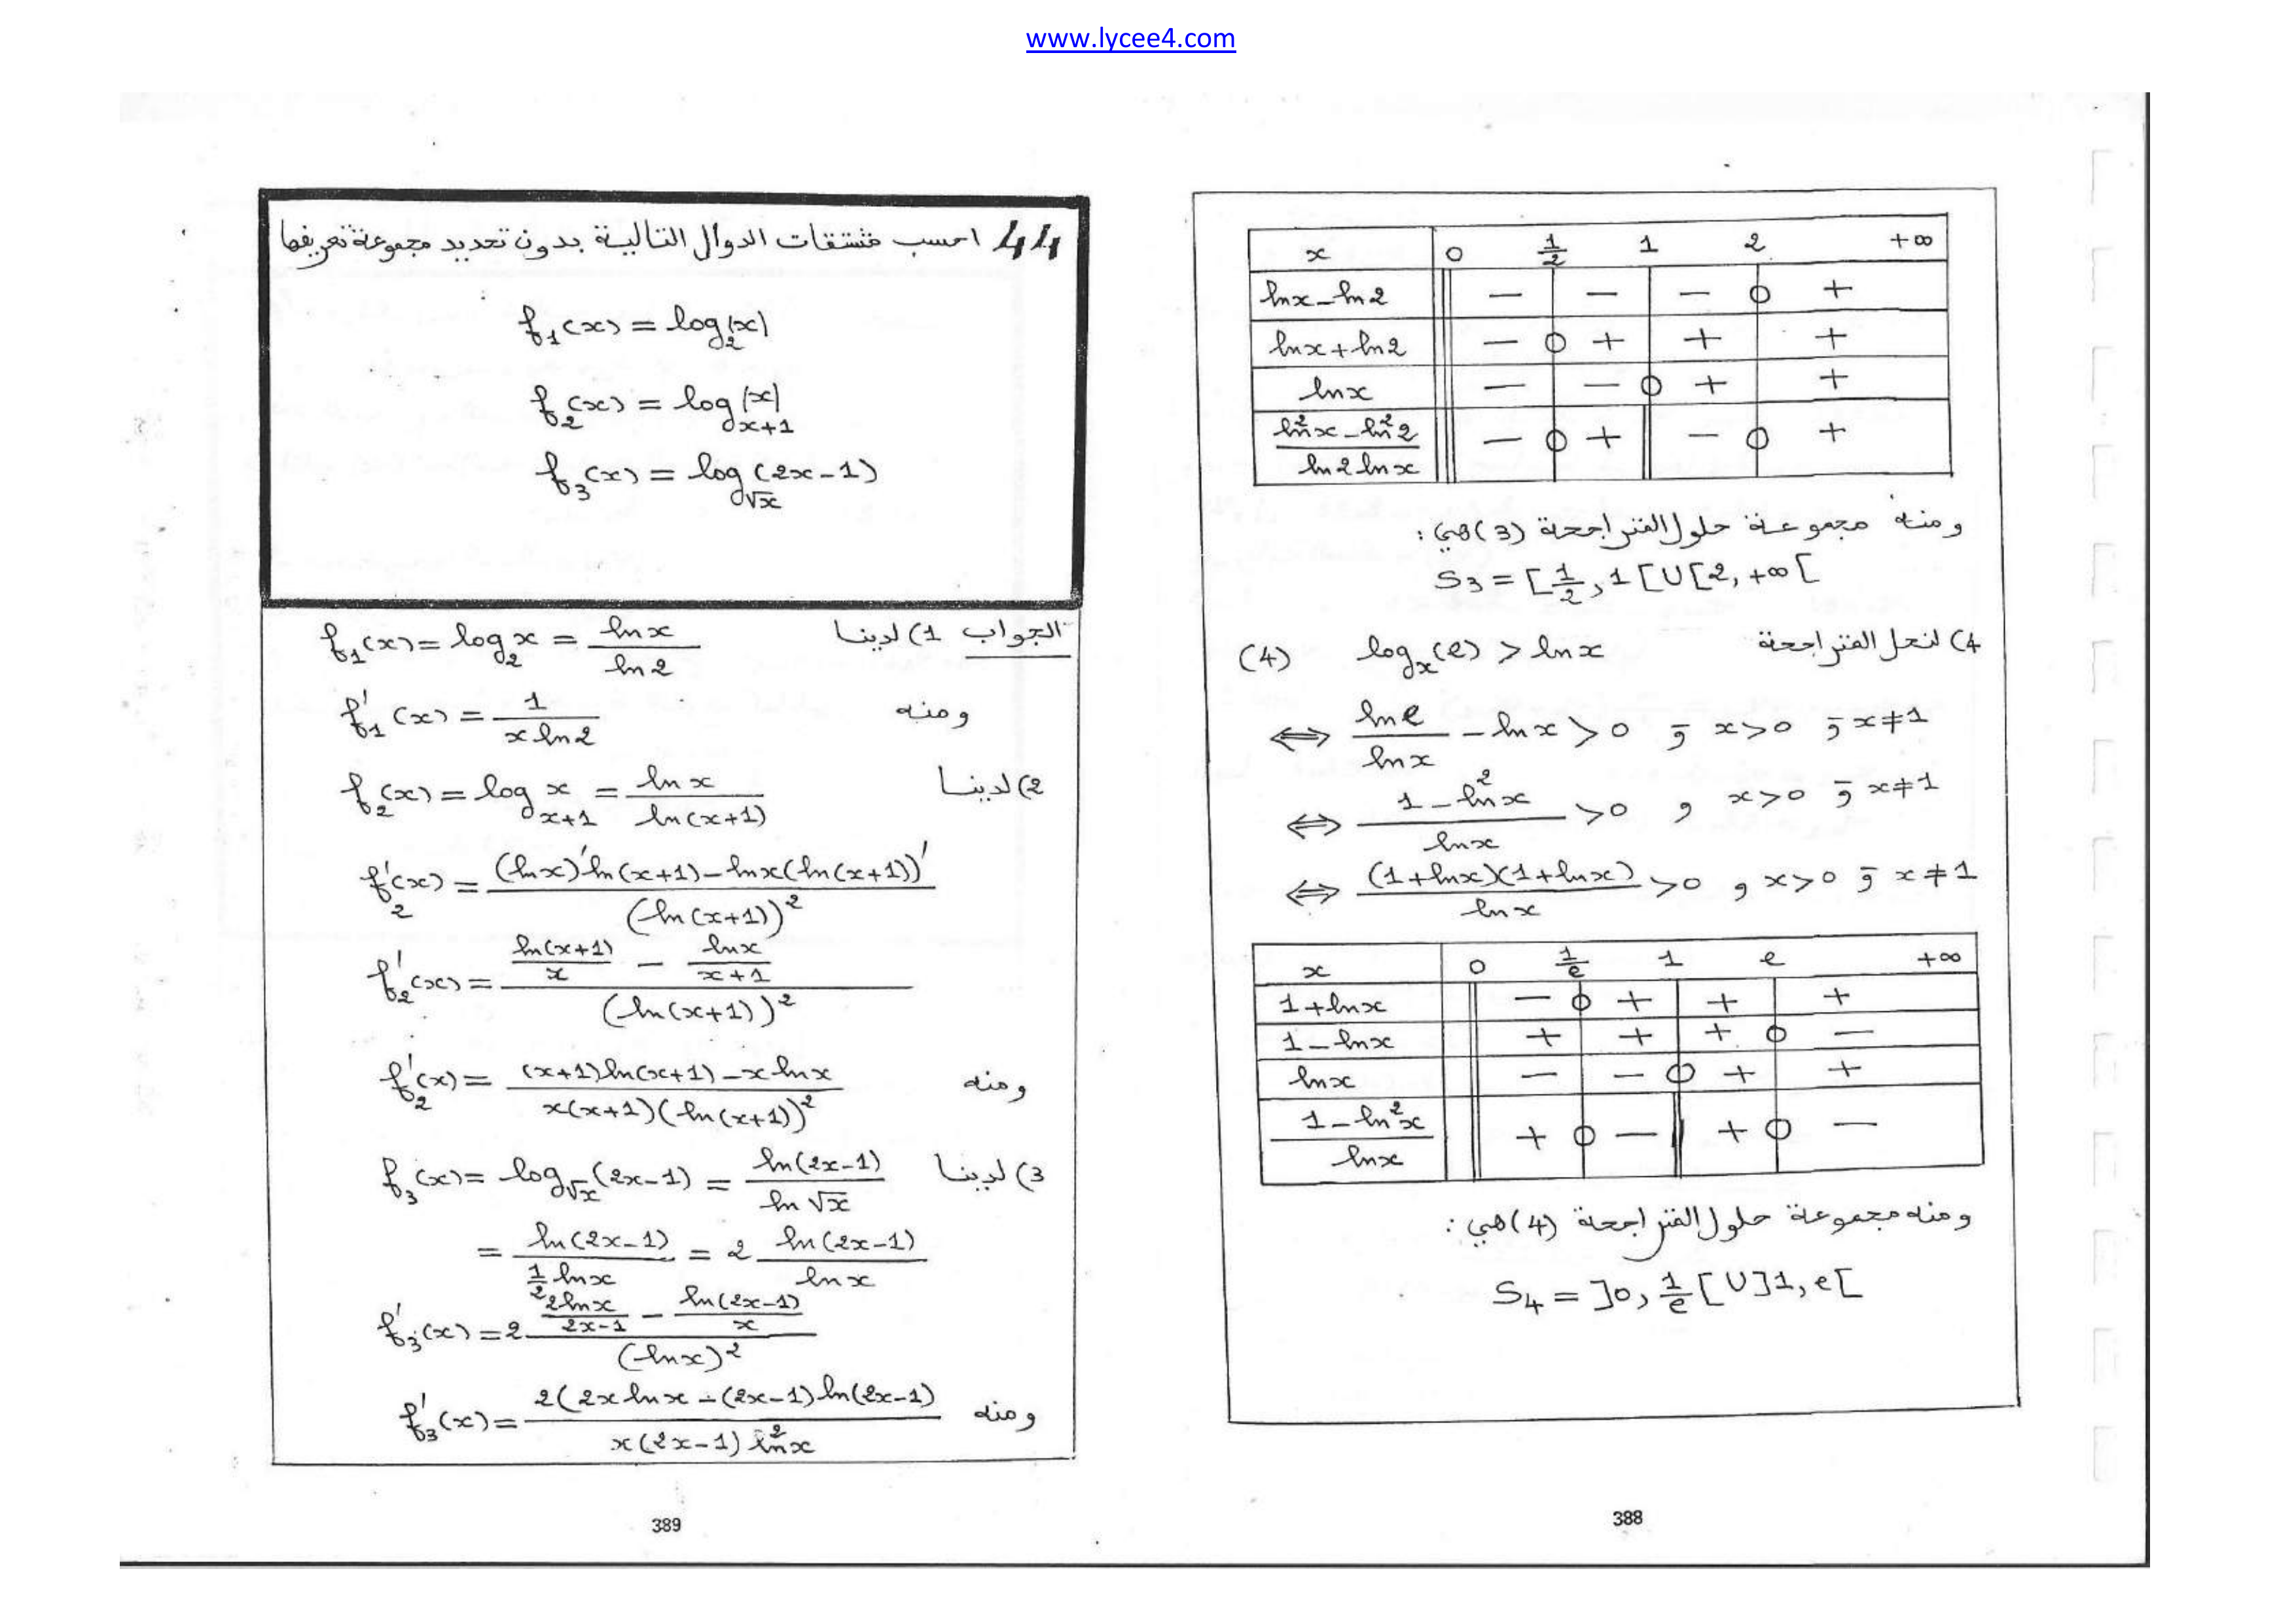 www.lycee4.com
x 0 1/2 1 2 +∞
lnx-ln2 - - - 0 +
lnx+ln2 - 0 + + +
lnx - - 0 + +
(ln²x-ln²2)/(ln2 lnx) - 0 + - 0 +
ومنه مجموعة حلول المتراجحة (3) هي:
S₃ = [1/2, 1[ U [2, +∞[
4) لنحل المتراجحة logₓ(e) > lnx (4)
⟺ lne/lnx - lnx > 0 و x>0 و x≠1
⟺ (1-ln²x)/lnx > 0 و x>0 و x≠1
⟺ (1+lnx)(1+lnx)/lnx > 0 و x>0 و x≠1
x 0 1/e 1 e +∞
1+lnx - 0 + + +
1-lnx + + + 0 -
lnx - - 0 + +
(1-ln²x)/lnx + 0 - + 0 -
ومنه مجموعة حلول المتراجحة (4) هي:
S₄ = ]0, 1/e[ U ]1, e[
388
44 احسب مشتقات الدوال التالية بدون تحديد مجموعة تعريفها
f₁(x) = log₂|x|
f₂(x) = log_{x+1}|x|
f₃(x) = log_{√x}(2x-1)
الجواب 1) لدينا f₁(x) = log₂x = lnx/ln2
ومنه f₁'(x) = 1/(x ln2)
2) لدينا f₂(x) = log_{x+1} x = lnx/ln(x+1)
f₂'(x) = ((lnx)'ln(x+1)-lnx(ln(x+1))')/(ln(x+1))²
f₂'(x) = (ln(x+1)/x - lnx/(x+1))/(ln(x+1))²
ومنه f₂'(x) = ((x+1)ln(x+1)-x lnx)/(x(x+1)(ln(x+1))²)
3) لدينا f₃(x) = log_{√x}(2x-1) = ln(2x-1)/ln√x
= ln(2x-1)/(1/2 lnx) = 2 ln(2x-1)/lnx
f₃'(x) = 2 (2lnx/(2x-1) - ln(2x-1)/x)/(lnx)²
ومنه f₃'(x) = 2(2x lnx - (2x-1)ln(2x-1)/(x(2x-1)ln²x)
389